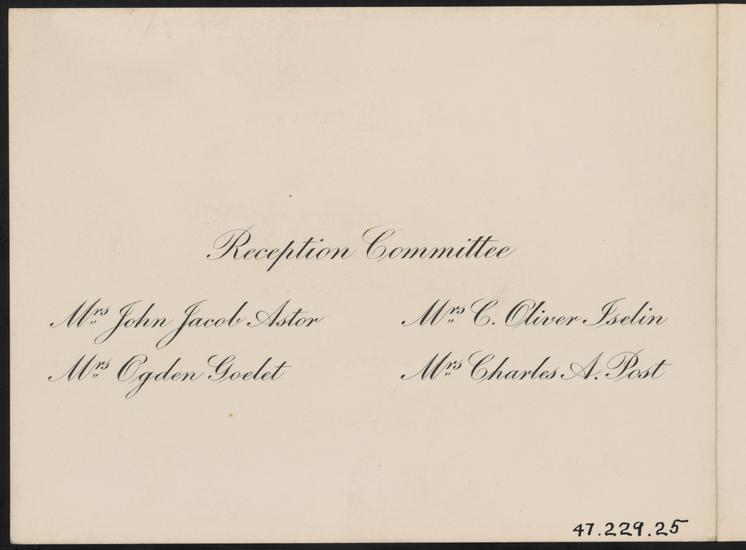 Reception Committee
Mrs John Jacob Astor
Mrs Ogden Goelet
Mrs C. Oliver Iselin
Mrs Charles A. Post
47.229.25